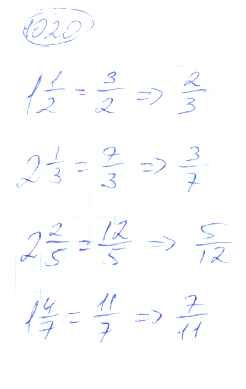 1020
1 1/2 = 3/2 => 2/3
2 1/3 = 7/3 => 3/7
2 2/5 = 12/5 => 5/12
1 4/7 = 11/7 => 7/11